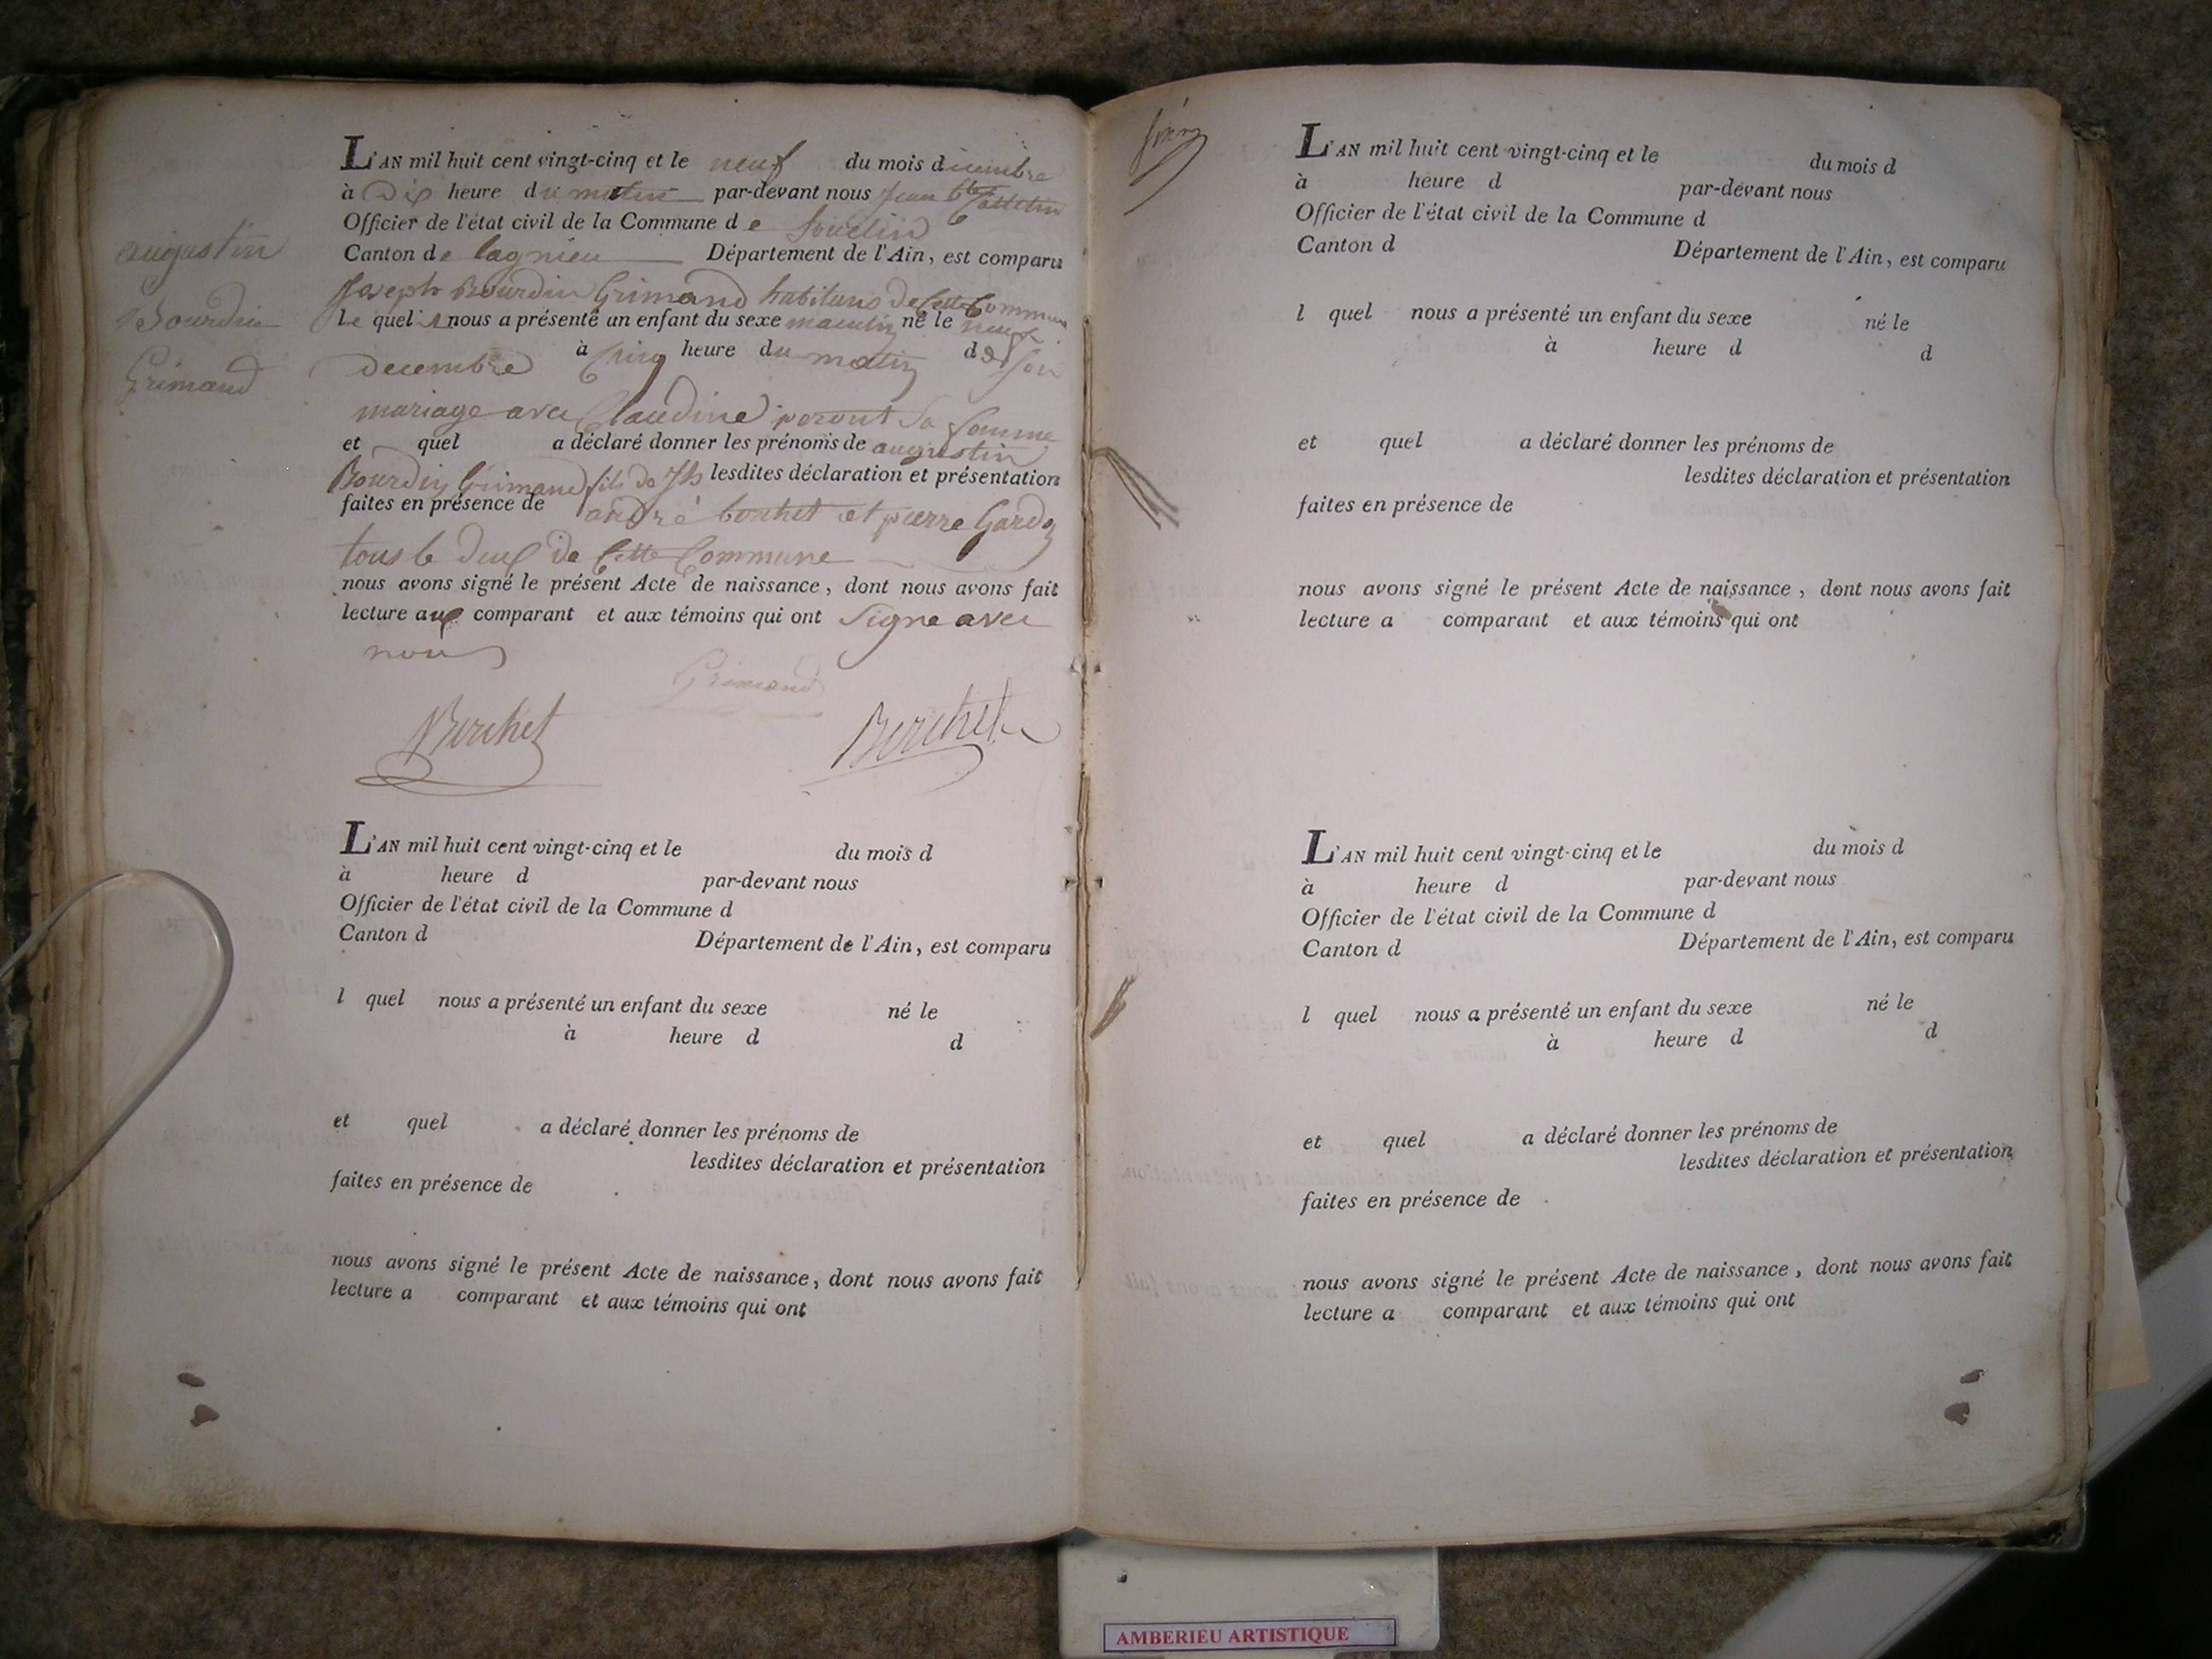 L'AN mil huit cent vingt-cinq et le neuf du mois decembre
à Dix heure du matin par-devant nous jean
Officier de l'état civil de la Commune de Souclin
Canton de lagnieu Département de l'Ain, est comparu
augustin
Bourdin
Grimand
Joseph Bourdin Grimand habitans de Cette Commune
Le quel nous a présenté un enfant du sexe masculin né le neuf
decembre à Cinq heure du matin de son
mariage avec Claudine peront sa famme
et quel a déclaré donner les prénoms de augustin
Bourdin Grimand fils de Jh lesdites déclaration et présentation
faites en présence de andré berthet et pierre
tous le deux de Cette Commune
nous avons signé le présent Acte de naissance, dont nous avons fait
lecture aux comparant et aux témoins qui ont Signe avec
nous
Grimand
Berthet
Berthet
L'AN mil huit cent vingt-cinq et le du mois d
à heure d par-devant nous
Officier de l'état civil de la Commune d
Canton d Département de l'Ain, est comparu
l quel nous a présenté un enfant du sexe né le
à heure d d
et quel a déclaré donner les prénoms de
lesdites déclaration et présentation
faites en présence de
nous avons signé le présent Acte de naissance, dont nous avons fait
lecture a comparant et aux témoins qui ont
L'AN mil huit cent vingt-cinq et le du mois d
à heure d par-devant nous
Officier de l'état civil de la Commune d
Canton d Département de l'Ain, est comparu
l quel nous a présenté un enfant du sexe né le
à heure d d
et quel a déclaré donner les prénoms de
lesdites déclaration et présentation
faites en présence de
nous avons signé le présent Acte de naissance, dont nous avons fait
lecture a comparant et aux témoins qui ont
L'AN mil huit cent vingt-cinq et le du mois d
à heure d par-devant nous
Officier de l'état civil de la Commune d
Canton d Département de l'Ain, est comparu
l quel nous a présenté un enfant du sexe né le
à heure d d
et quel a déclaré donner les prénoms de
lesdites déclaration et présentation
faites en présence de
nous avons signé le présent Acte de naissance, dont nous avons fait
lecture a comparant et aux témoins qui ont
AMBERIEU ARTISTIQUE